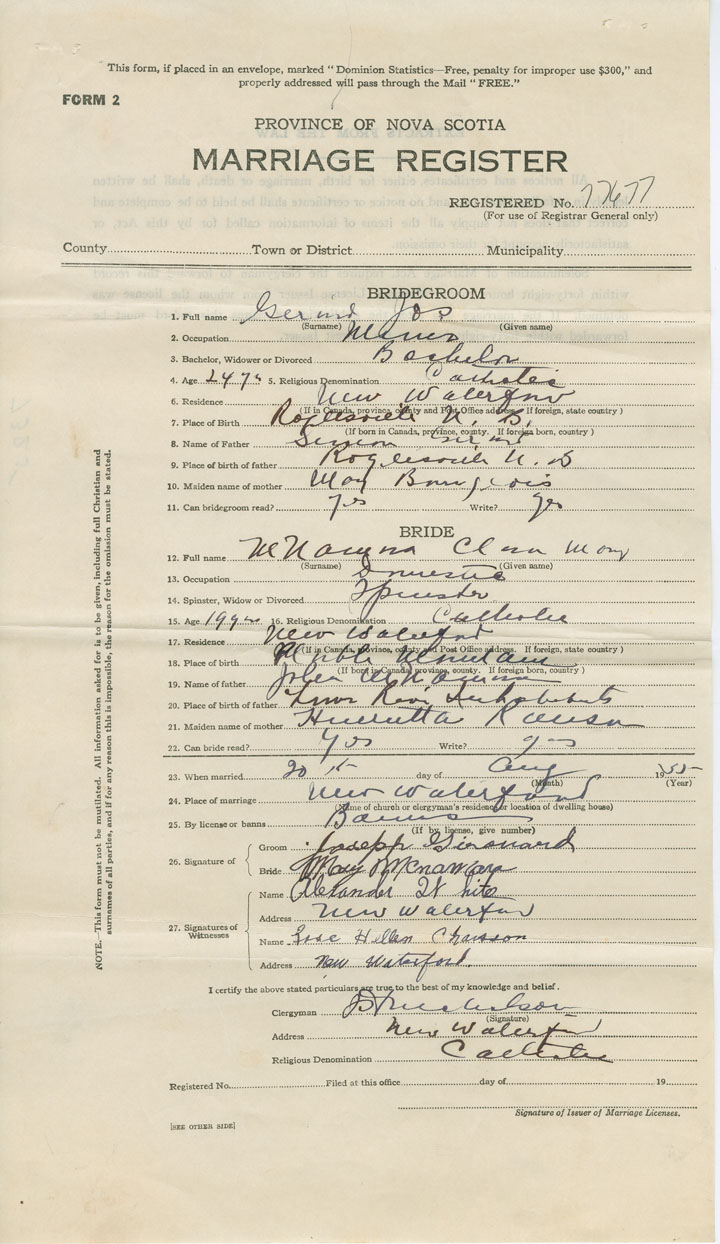 This form, if placed in an envelope, marked "Dominion Statistics—Free, penalty for improper use $300," and
properly addressed will pass through the Mail "FREE."
FORM 2
PROVINCE OF NOVA SCOTIA
MARRIAGE REGISTER
REGISTERED No. 77677
(For use of Registrar General only)
County Town or District Municipality
BRIDEGROOM
1. Full name Jos
(Surname) (Given name)
2. Occupation Miner
3. Bachelor, Widower or Divorced Bachelor
4. Age 24 yrs 5. Religious Denomination Catholic
6. Residence New Waterford
(If in Canada, province, county and Post Office address. If foreign, state country)
7. Place of Birth Rogersville N. B.
(If born in Canada, province, county. If foreign born, country)
8. Name of Father Simon
9. Place of birth of father Rogersville N. B
10. Maiden name of mother May Bourgeois
11. Can bridegroom read? yes Write? yes
BRIDE
12. Full name McNamara Clara May
(Surname) (Given name)
13. Occupation Domestic
14. Spinster, Widow or Divorced Spinster
15. Age 19 16. Religious Denomination Catholic
17. Residence New Waterford
(If in Canada, province, county and Post Office address. If foreign, state country)
18. Place of birth
(If born in Canada, province, county. If foreign born, country)
19. Name of father John McNamara
20. Place of birth of father
21. Maiden name of mother Henrietta
22. Can bride read? yes Write? yes
23. When married 20 day of Aug 19
(Month) (Year)
24. Place of marriage New Waterford
(Name of church or clergyman's residence or location of dwelling house)
25. By license or banns Banns
(If by license, give number)
26. Signature of
Groom Joseph Girouard
Bride May McNamara
27. Signatures of Witnesses
Name Alexander White
Address New Waterford
Name Hellen Chiasson
Address New Waterford.
I certify the above stated particulars are true to the best of my knowledge and belief.
Clergyman
(Signature)
Address New Waterford
Religious Denomination Catholic
Registered No. Filed at this office day of 19
Signature of Issuer of Marriage Licenses.
[SEE OTHER SIDE]
NOTE.—This form must not be mutilated. All information asked for is to be given, including full Christian and
surnames of all parties, and if for any reason this is impossible, the reason for the omission must be stated.